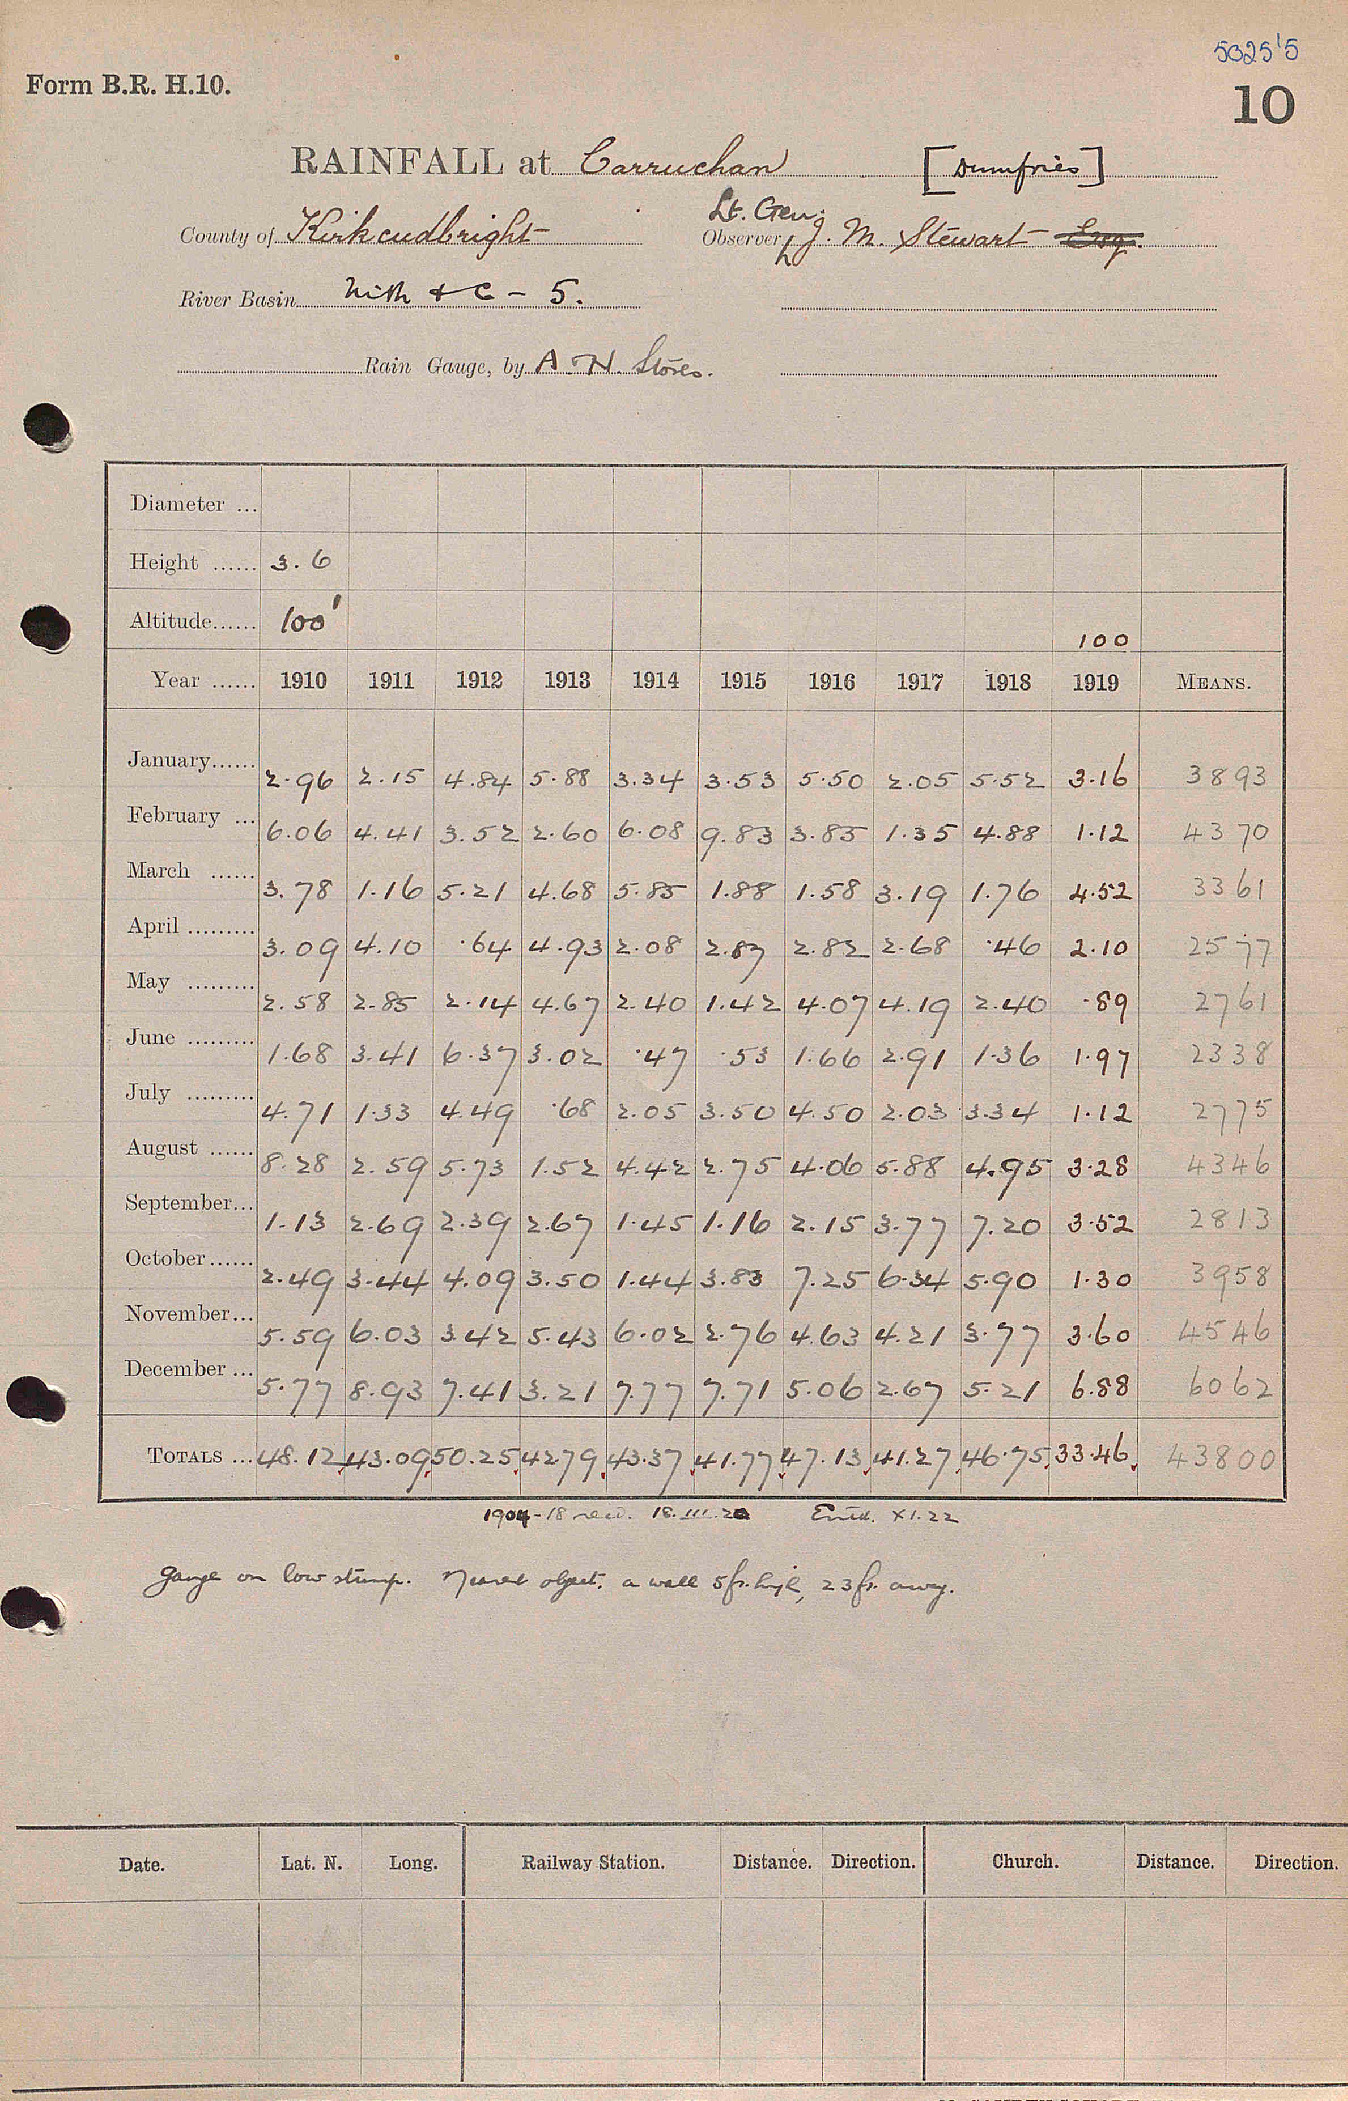 5325'5
Form B.R. H.10.
10
RAINFALL at Carruchan [Dumfries]
Lt. Gen.
County of Kirkcudbright Observer, J. M. Stewart Esq.
River Basin Nith & C - 5.
Rain Gauge, by A. N. Stores.
Diameter ...
Height ...... 3. 6
Altitude...... 100' 100
Year ...... 1910 1911 1912 1913 1914 1915 1916 1917 1918 1919 MEANS.
January...... 2.96 2.15 4.84 5.88 3.34 3.53 5.50 2.05 5.52 3.16 3893
February ... 6.06 4.41 3.52 2.60 6.08 9.83 3.85 1.35 4.88 1.12 4370
March ...... 3.78 1.16 5.21 4.68 5.85 1.88 1.58 3.19 1.76 4.52 3361
April ......... 3.09 4.10 .64 4.93 2.08 2.87 2.82 2.68 .46 2.10 2577
May ......... 2.58 2.85 2.14 4.67 2.40 1.42 4.07 4.19 2.40 .89 2761
June ......... 1.68 3.41 6.37 3.02 .47 .53 1.66 2.91 1.36 1.97 2338
July ......... 4.71 1.33 4.49 .68 2.05 3.50 4.50 2.03 3.34 1.12 2775
August ...... 8.28 2.59 5.73 1.52 4.42 2.75 4.06 5.88 4.95 3.28 4346
September... 1.13 2.69 2.39 2.67 1.45 1.16 2.15 3.77 7.20 3.52 2813
October...... 2.49 3.44 4.09 3.50 1.44 3.83 7.25 6.34 5.90 1.30 3958
November... 5.59 6.03 3.42 5.43 6.02 2.76 4.63 4.21 3.77 3.60 4546
December ... 5.77 8.93 7.41 3.21 7.77 7.71 5.06 2.67 5.21 6.88 6062
TOTALS ... 48.12 43.09 50.25 42.79 43.37 41.77 47.13 41.27 46.75 33.46 43800
1904-18 recd. 18.III.20 Entd. XI.22
Gauge on low stump. Nearest object, a wall 5ft. high, 23ft. away.
Date. Lat. N. Long. Railway Station. Distance. Direction. Church. Distance. Direction.